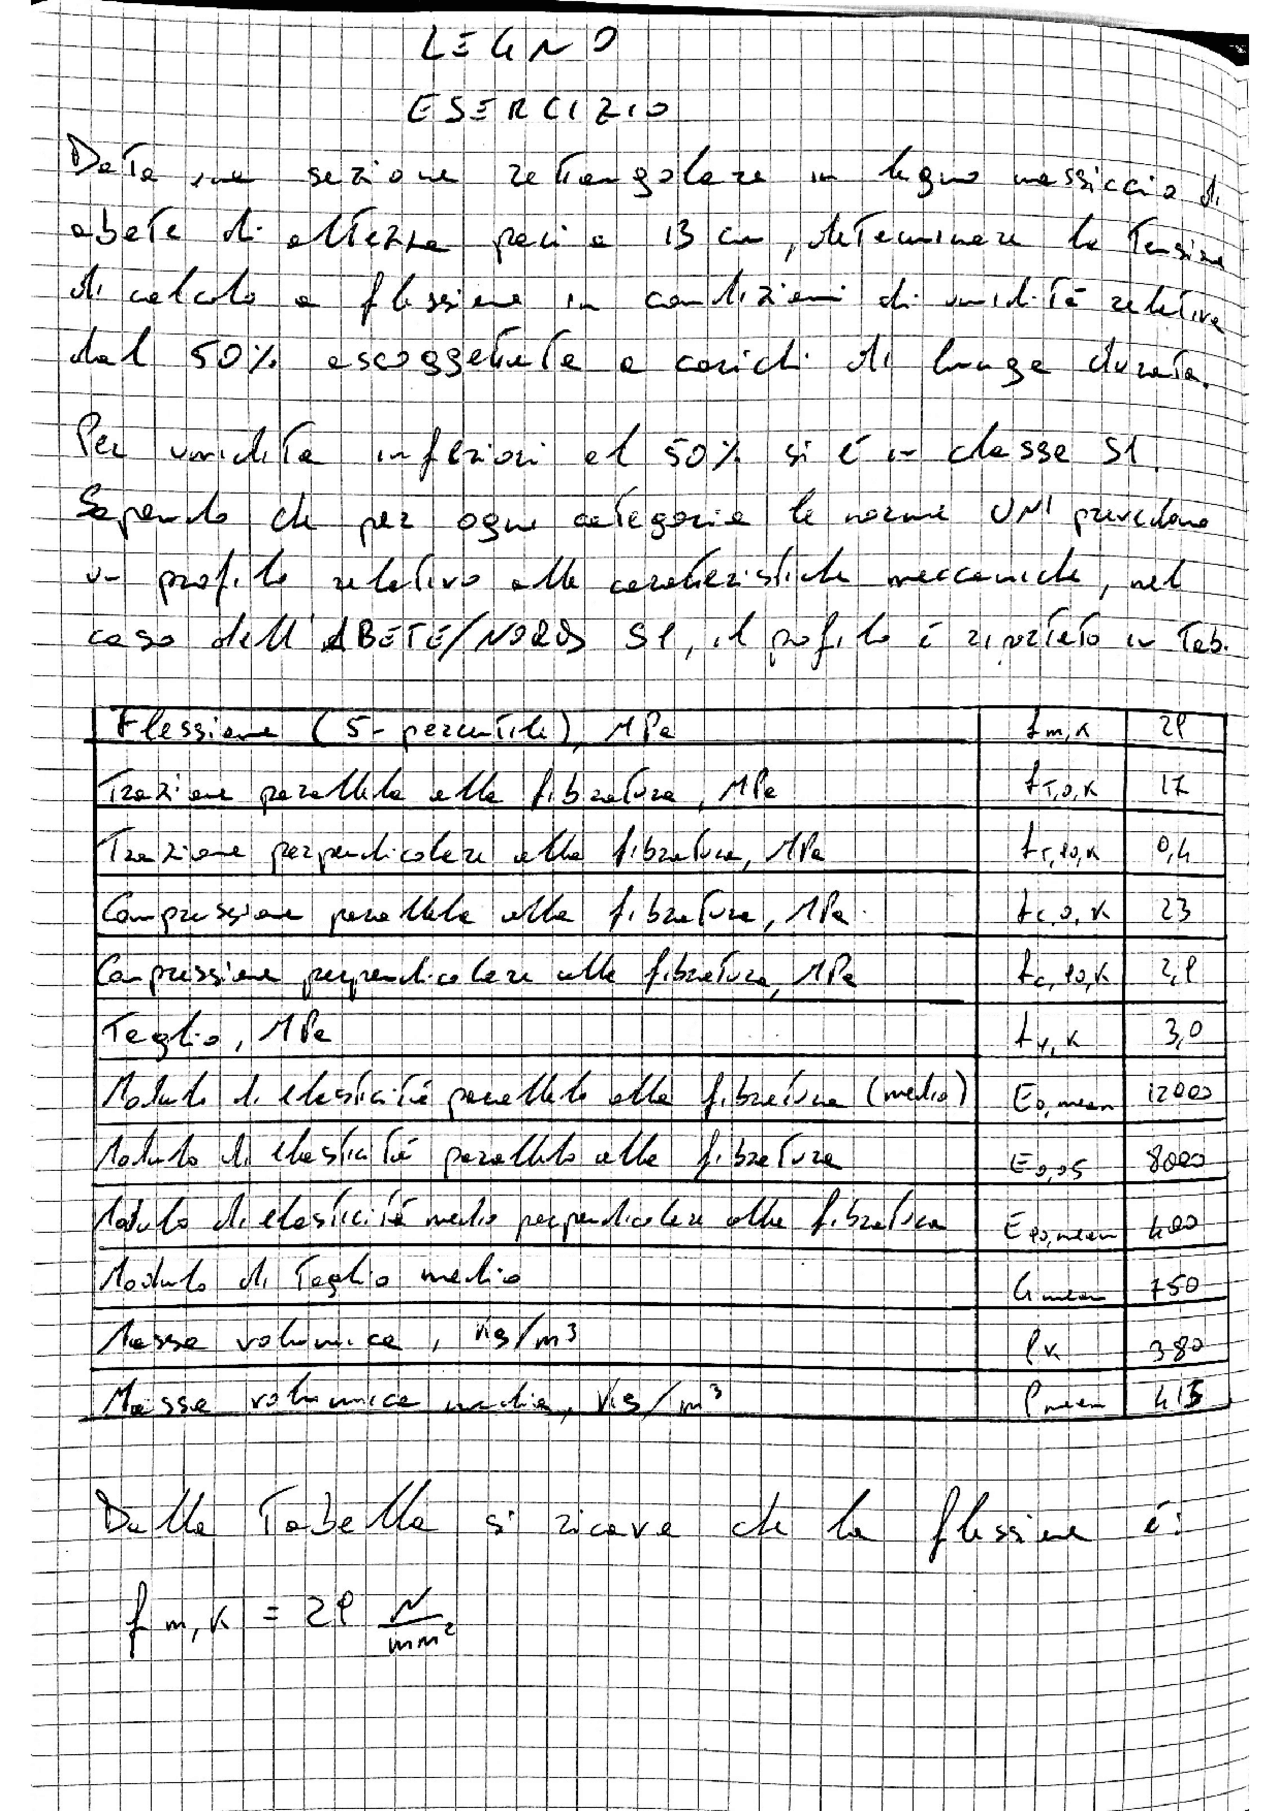 LEGNO
ESERCIZIO
Data una sezione rettangolare in legno massiccio di
abete di altezza pari a 13 cm, determinare la tensione
di calcolo a flessione in condizioni di umidità relativa
dal 50% e soggettata a carichi di lunga durata.
Per umidità inferiori al 50% si è in classe S1.
Sapendo che per ogni categoria le norme UNI prevedono
un profilo relativo alle caratteristiche meccaniche, nel
caso dell'ABETE/NORD S1, il profilo è riportato in Tab.
Flessione (5-percentile), MPa fm,k 29
Trazione parallela alla fibratura, MPa fT,0,k 17
Trazione perpendicolare alla fibratura, MPa fT,90,k 0,4
Compressione parallela alla fibratura, MPa fc,0,k 23
Compressione perpendicolare alla fibratura, MPa fc,90,k 2,9
Taglio, MPa fv,k 3,0
Modulo di elasticità parallelo alla fibratura (medio) E0,mean 12000
Modulo di elasticità parallelo alla fibratura E0,05 8000
Modulo di elasticità medio perpendicolare alla fibratura E90,mean 400
Modulo di Taglio medio Gmean 750
Massa volumica, Kg/m³ ρk 380
Massa volumica media, Kg/m³ ρmean 415
Dalla Tabella si ricava che la flessione è:
fm,k = 29 N/mm²